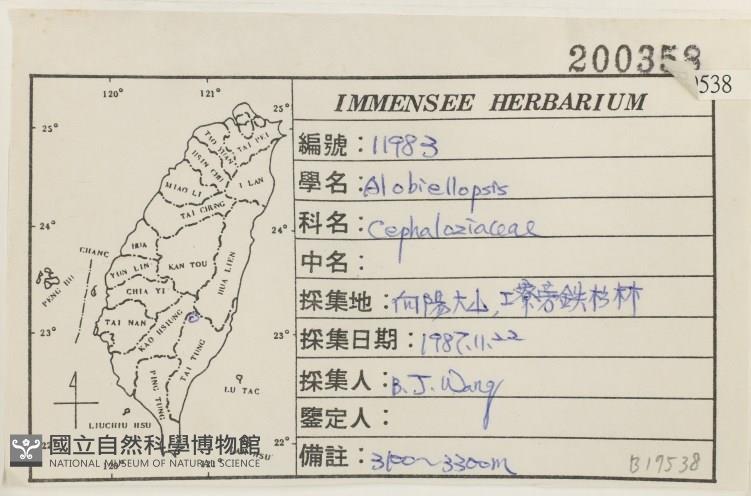 200358
9538
IMMENSEE HERBARIUM
編號：11983
學名：Alobiellopsis
科名：Cephaloziaceae
中名：
採集地：向陽大山，工寮旁鉄杉林
採集日期：1987.11.22
採集人：B. J. Wang
鑒定人：
備註：3100～3300m
B19538
120° 121° 25°
25°
TAO YUAN
TAI PEI
HSIN CHU
I LAN
MIAO LI
TAI CHUNG
24° 24°
CHANG
HUA
PENG HU
YUN LIN
NAN TOU
HUA LIEN
CHIA YI
TAI NAN
KAO HSIUNG
23° 23°
TAI TUNG
PING TUNG
LU TAO
LIUCHIU HSU
22°
國立自然科學博物館
NATIONAL MUSEUM OF NATURAL SCIENCE
120° 121°